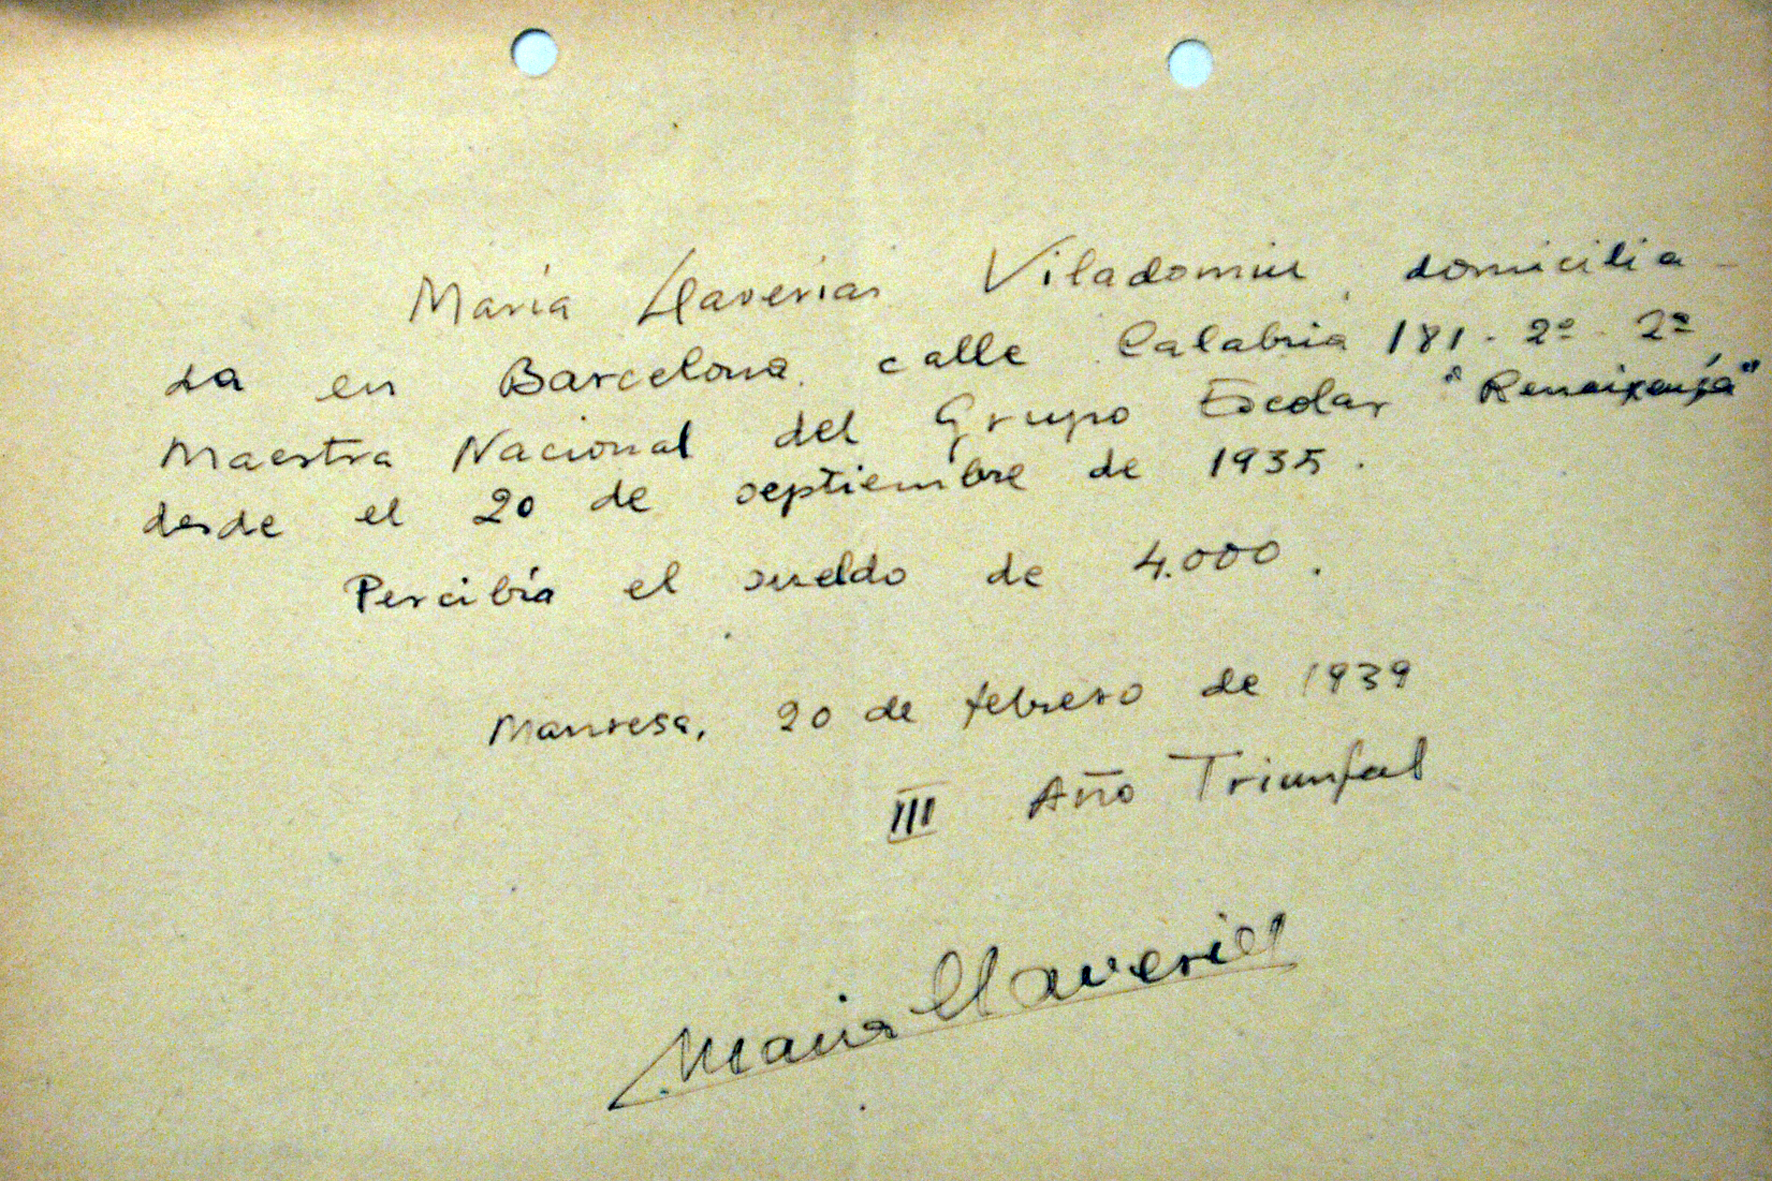 María Llaverías Viladomiu, domicilia-
da en Barcelona, calle Calabria 181. 2º 2ª
Maestra Nacional del Grupo Escolar "Renaixença"
desde el 20 de septiembre de 1935.
Percibía el sueldo de 4.000.
Manresa, 20 de febrero de 1939
III Año Triunfal
Maria Llaverias